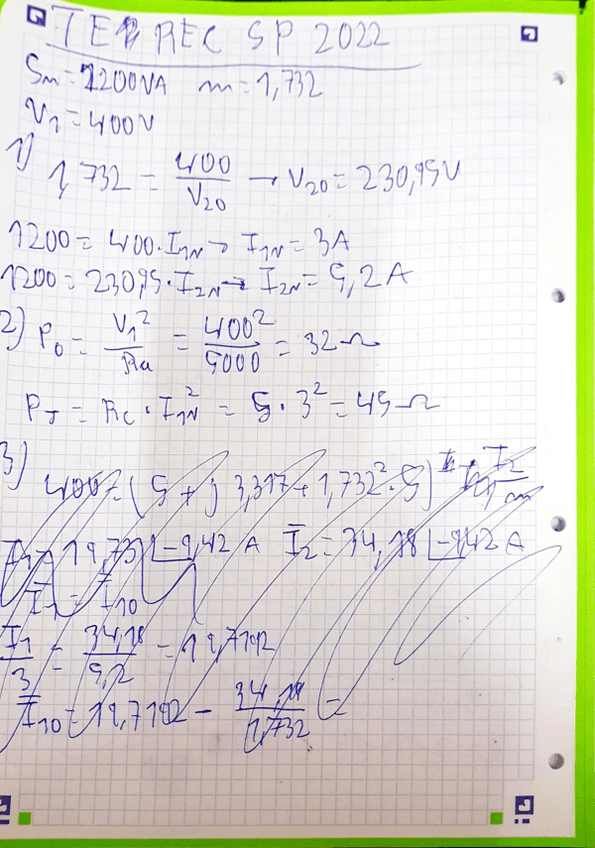 TEB REC SP 2022
Sm = 1200VA m = 1,732
V1 = 400V
1) 1,732 = 400/V20 → V20 = 230,95V
1200 = 400·I1N → I1N = 3A
1200 = 230,95·I2N → I2N = 5,2A
2) P0 = V1²/Ra = 400²/5000 = 32Ω
PJ = RC·I1N² = 5·3² = 45Ω
3) 400 = (5 + j 3,317 + 1,732²·5) I2/m
I1 = 19,73 |-9,42 A I2 = 34,18 |-9,42 A
I1 = I10
I1/3 = 34,18/5,2 = 19,7192
I10 = 19,7192 - 34,18/1,732 =